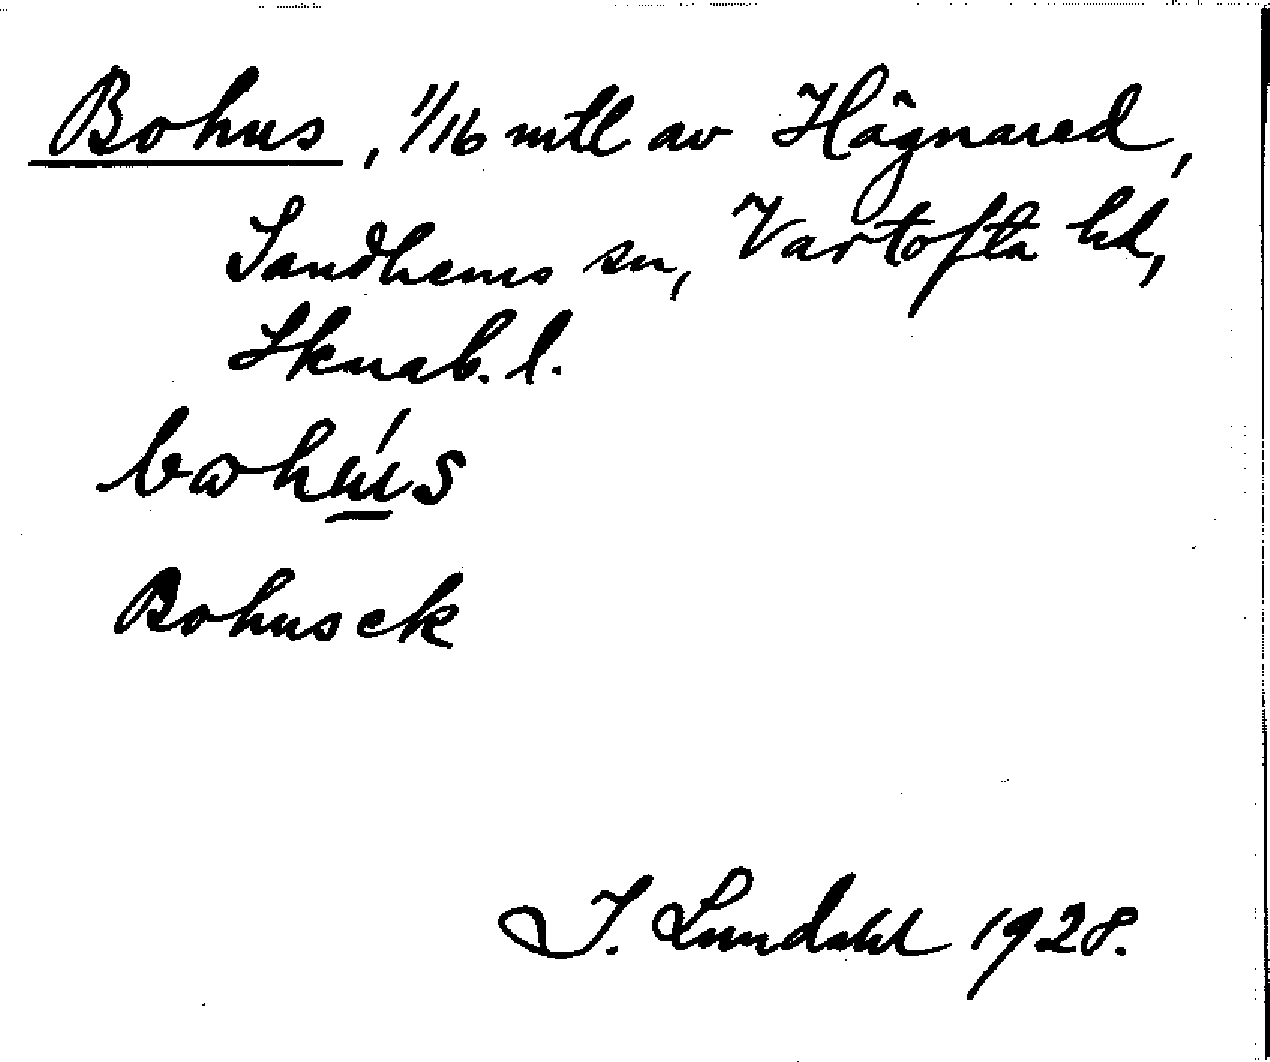 Bohus, 1/16 mtl av Hägnared,
Sandhems sn, Vartofta hd,
Skarab. l.
bωhú̲s
Bohus ek
I. Lundahl 1928.